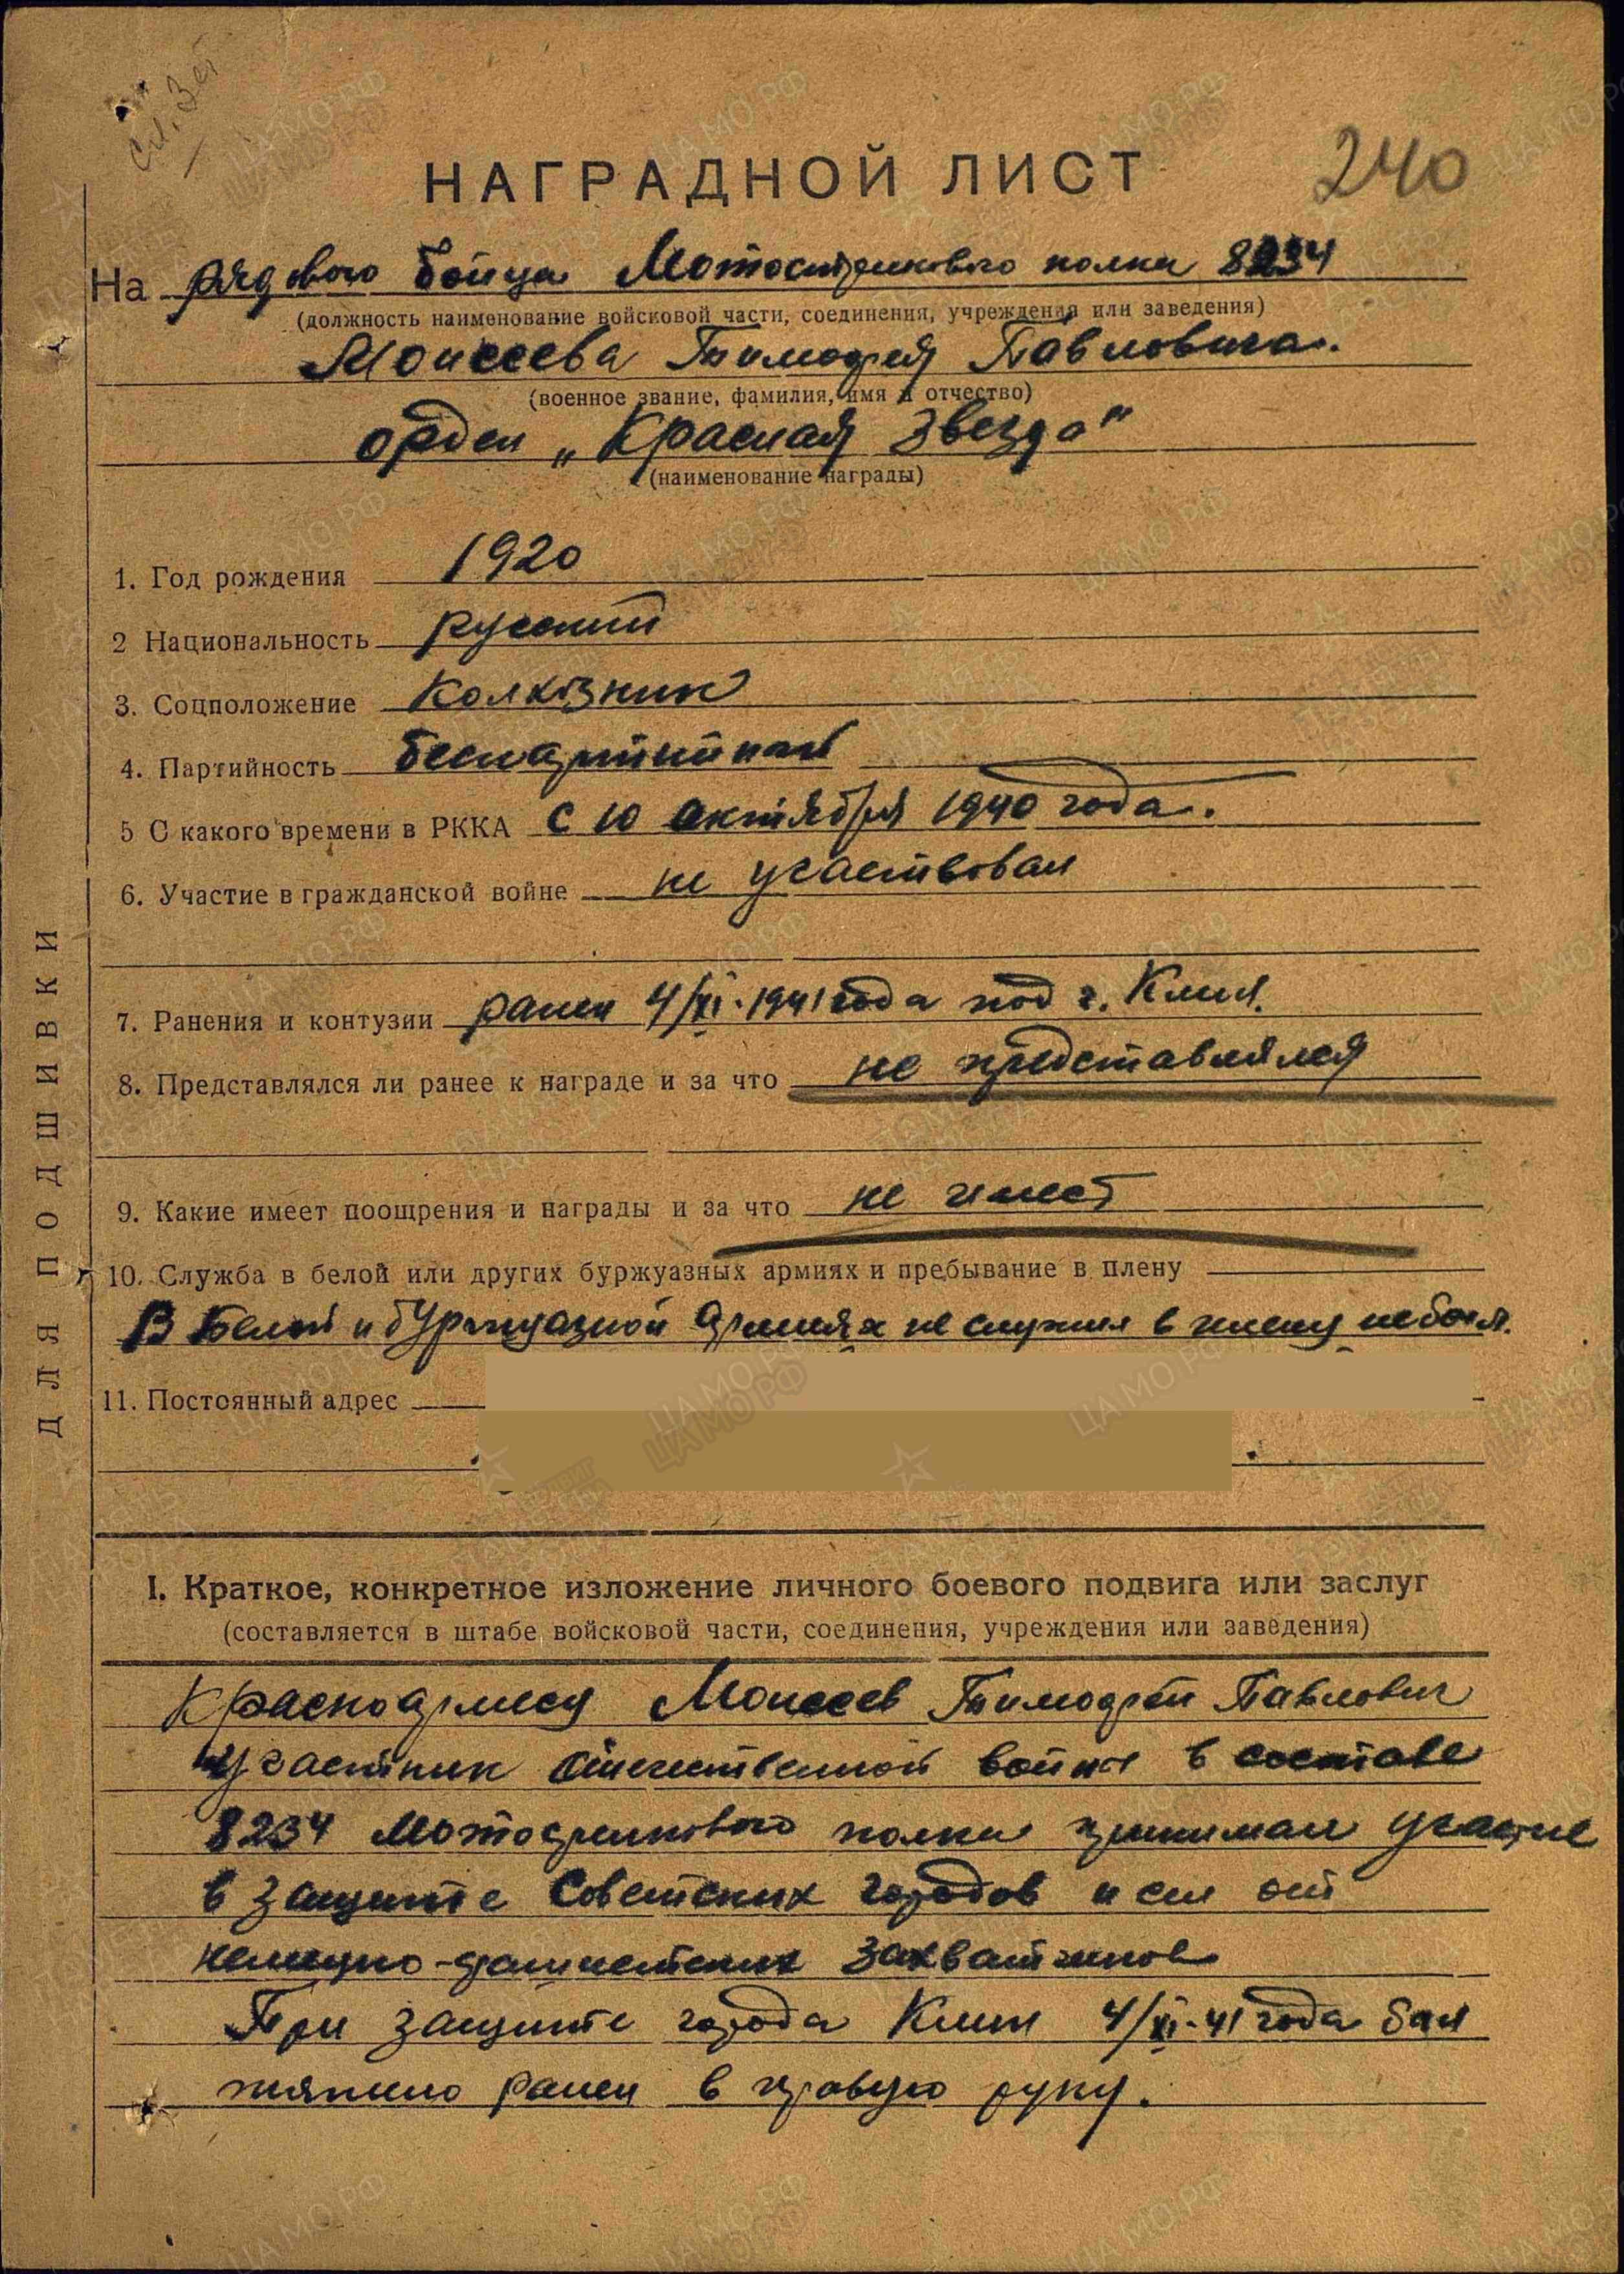 240
НАГРАДНОЙ ЛИСТ
На рядового бойца Мотострелкового полка 8234
(должность наименование войсковой части, соединения, учреждения или заведения)
Моисеева Тимофея Павловича.
(военное звание, фамилия, имя и отчество)
орден „Красная Звезда"
(наименование награды)
1. Год рождения 1920
2 Национальность русский
3. Соцположение Колхозник
4. Партийность беспартийный
5 С какого времени в РККА с 10 октября 1940 года.
6. Участие в гражданской войне не участвовал
7. Ранения и контузии ранен 4/XI-1941 года под г. Клин.
8. Представлялся ли ранее к награде и за что не представлялся
9. Какие имеет поощрения и награды и за что не имеет
10. Служба в белой или других буржуазных армиях и пребывание в плену
В Белой и буржуазной армиях не служил в плену не был.
11. Постоянный адрес
ДЛЯ ПОДШИВКИ
I. Краткое, конкретное изложение личного боевого подвига или заслуг
(составляется в штабе войсковой части, соединения, учреждения или заведения)
Красноармеец Моисеев Тимофей Павлович
участник отечественной войны в составе
8234 Мотострелкового полка принимал участие
в защите Советских городов и сел от
немецко-фашистских захватчиков
При защите города Клин 4/XI-41 года был
тяжело ранен в правую руку.
ЦАМО РФ